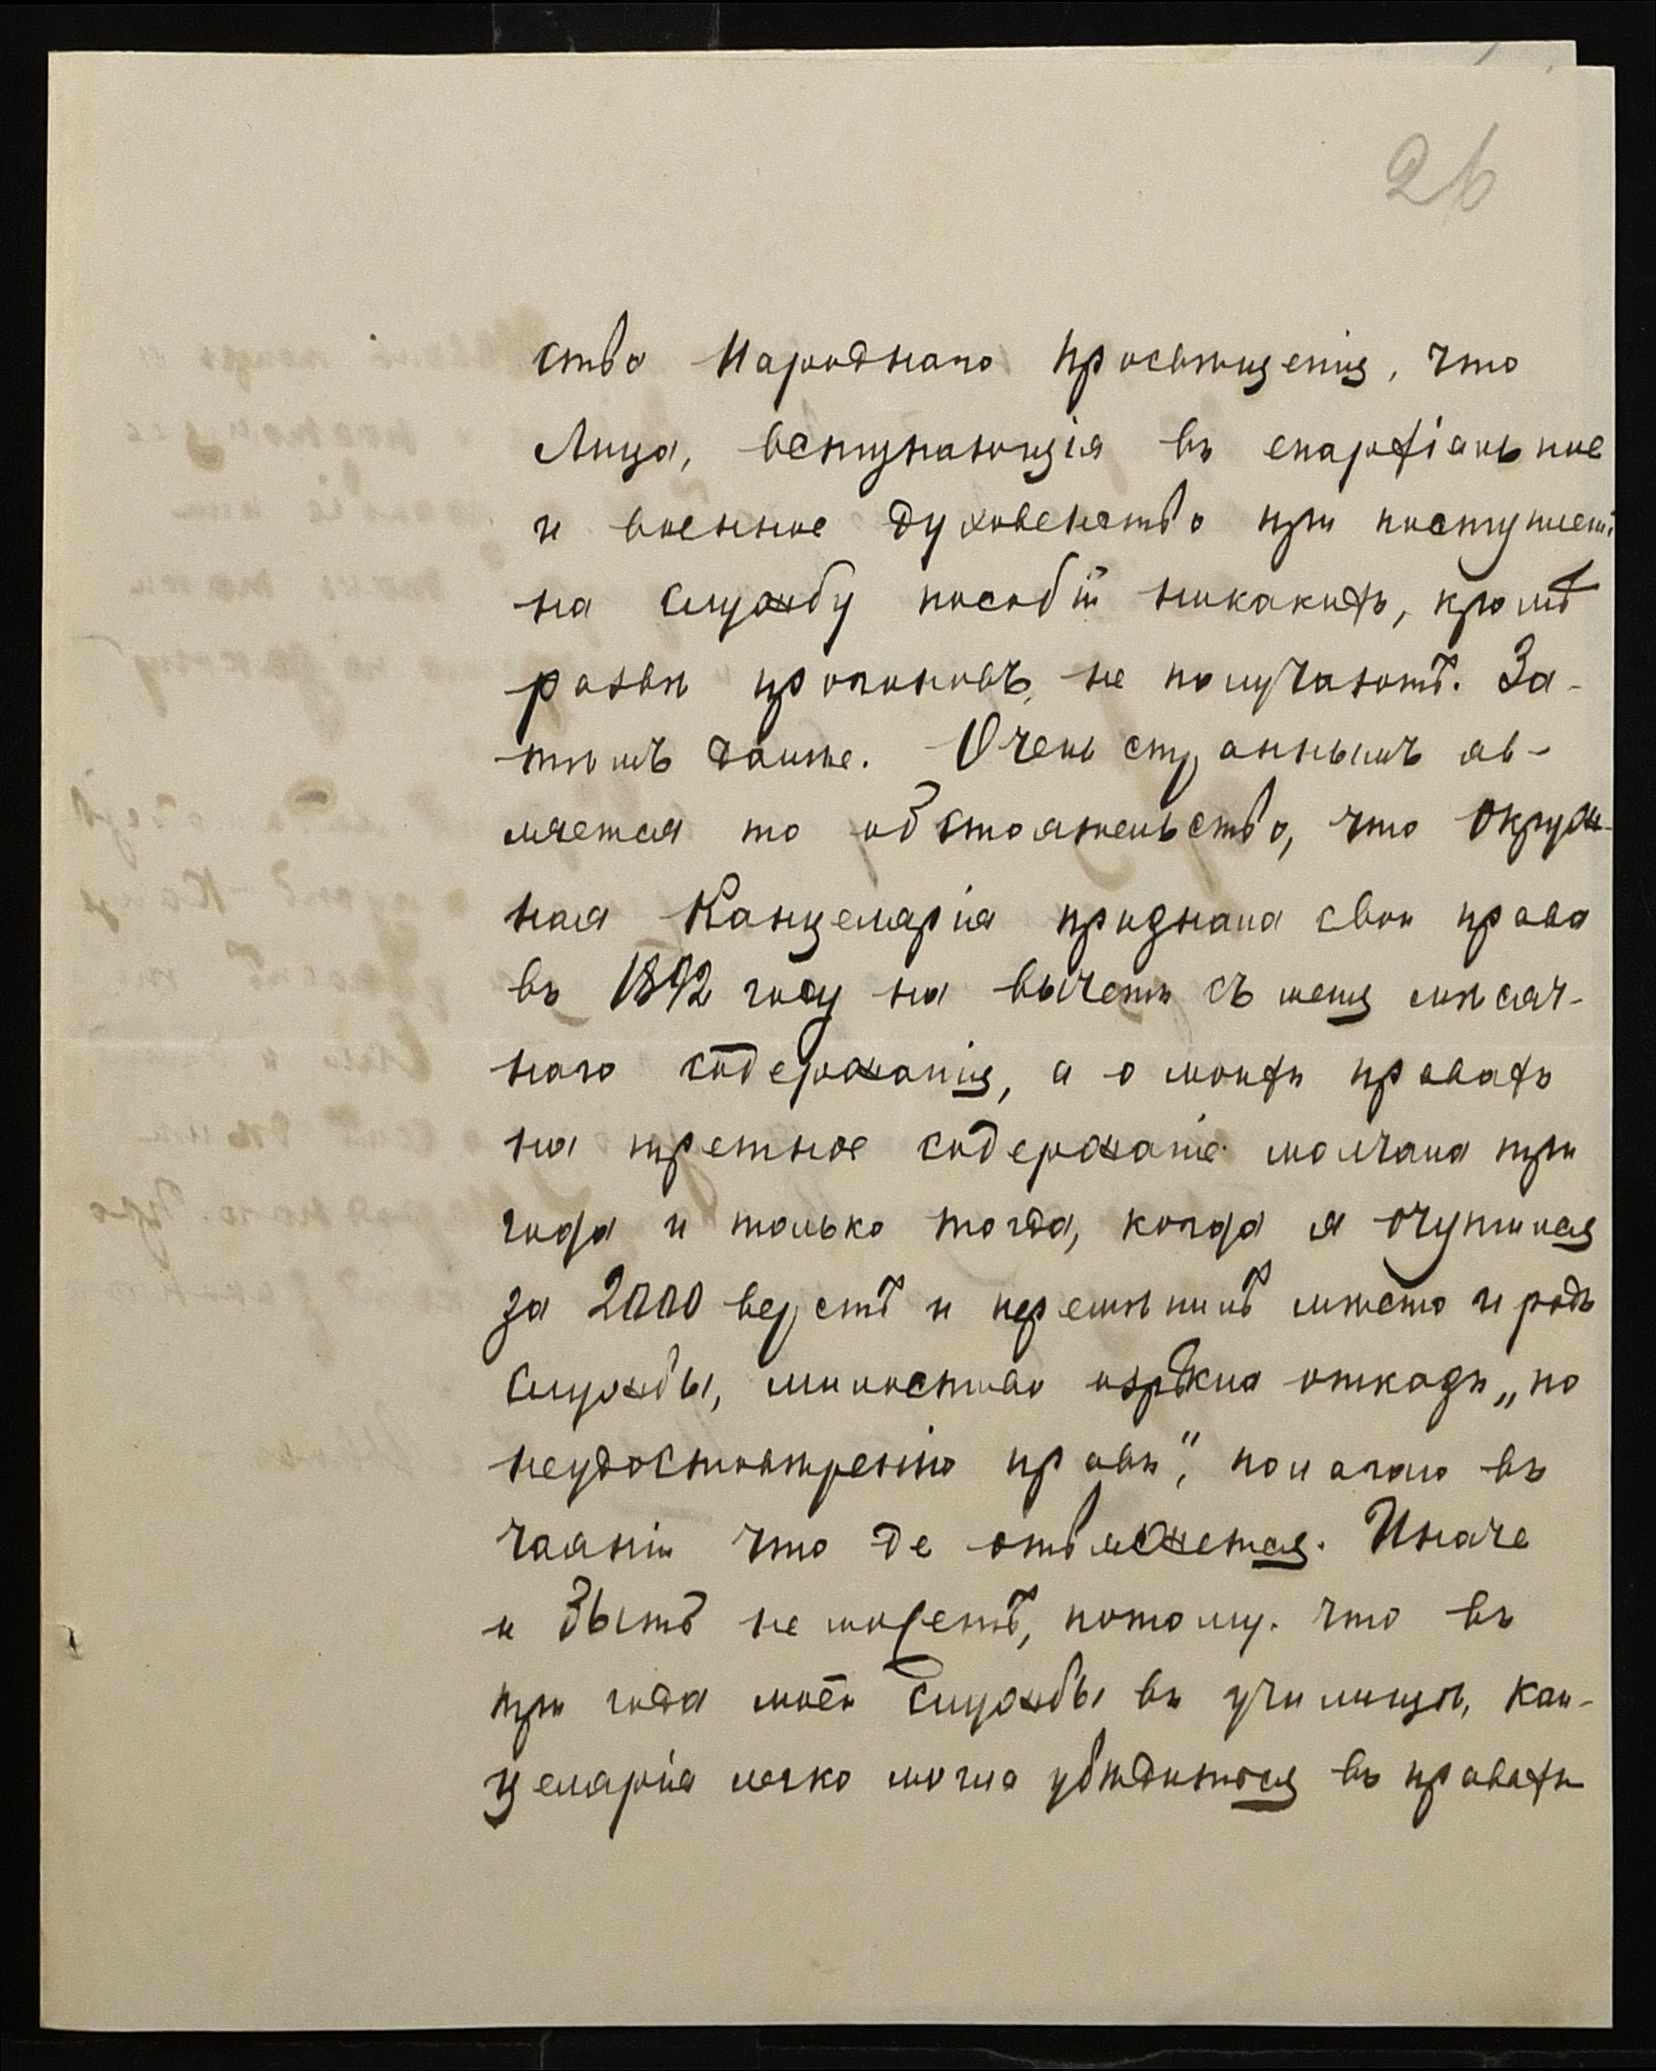 26
ство Народнаго Просвѣщенія, что
лица, вступающія въ епархіальное
и военное духовенство при поступлені
на службу пособій никакихъ, кромѣ
развѣ прогоновъ, не получаютъ. За-
тѣмъ далѣе. Очень страннымъ яв-
ляется то обстоятельство, что Окруж-
ная Канцелярія признала свои права
въ 1892 году на вычетъ съ меня мѣсяч-
наго содержанія, а о моихъ правахъ
на третное содержаніе молчала три
года и только тогда, когда я очутился
за 2000 верстъ и перемѣнилъ мѣсто и родъ
службы, милостиво изрѣкла отказъ „по
неудостовѣренію правъ", полагаю въ
чаяніи что де отвяжется. Иначе
и быть не можетъ, потому что въ
три года моей службы въ училищѣ, Кан-
целярія легко могла убѣдиться въ правахъ